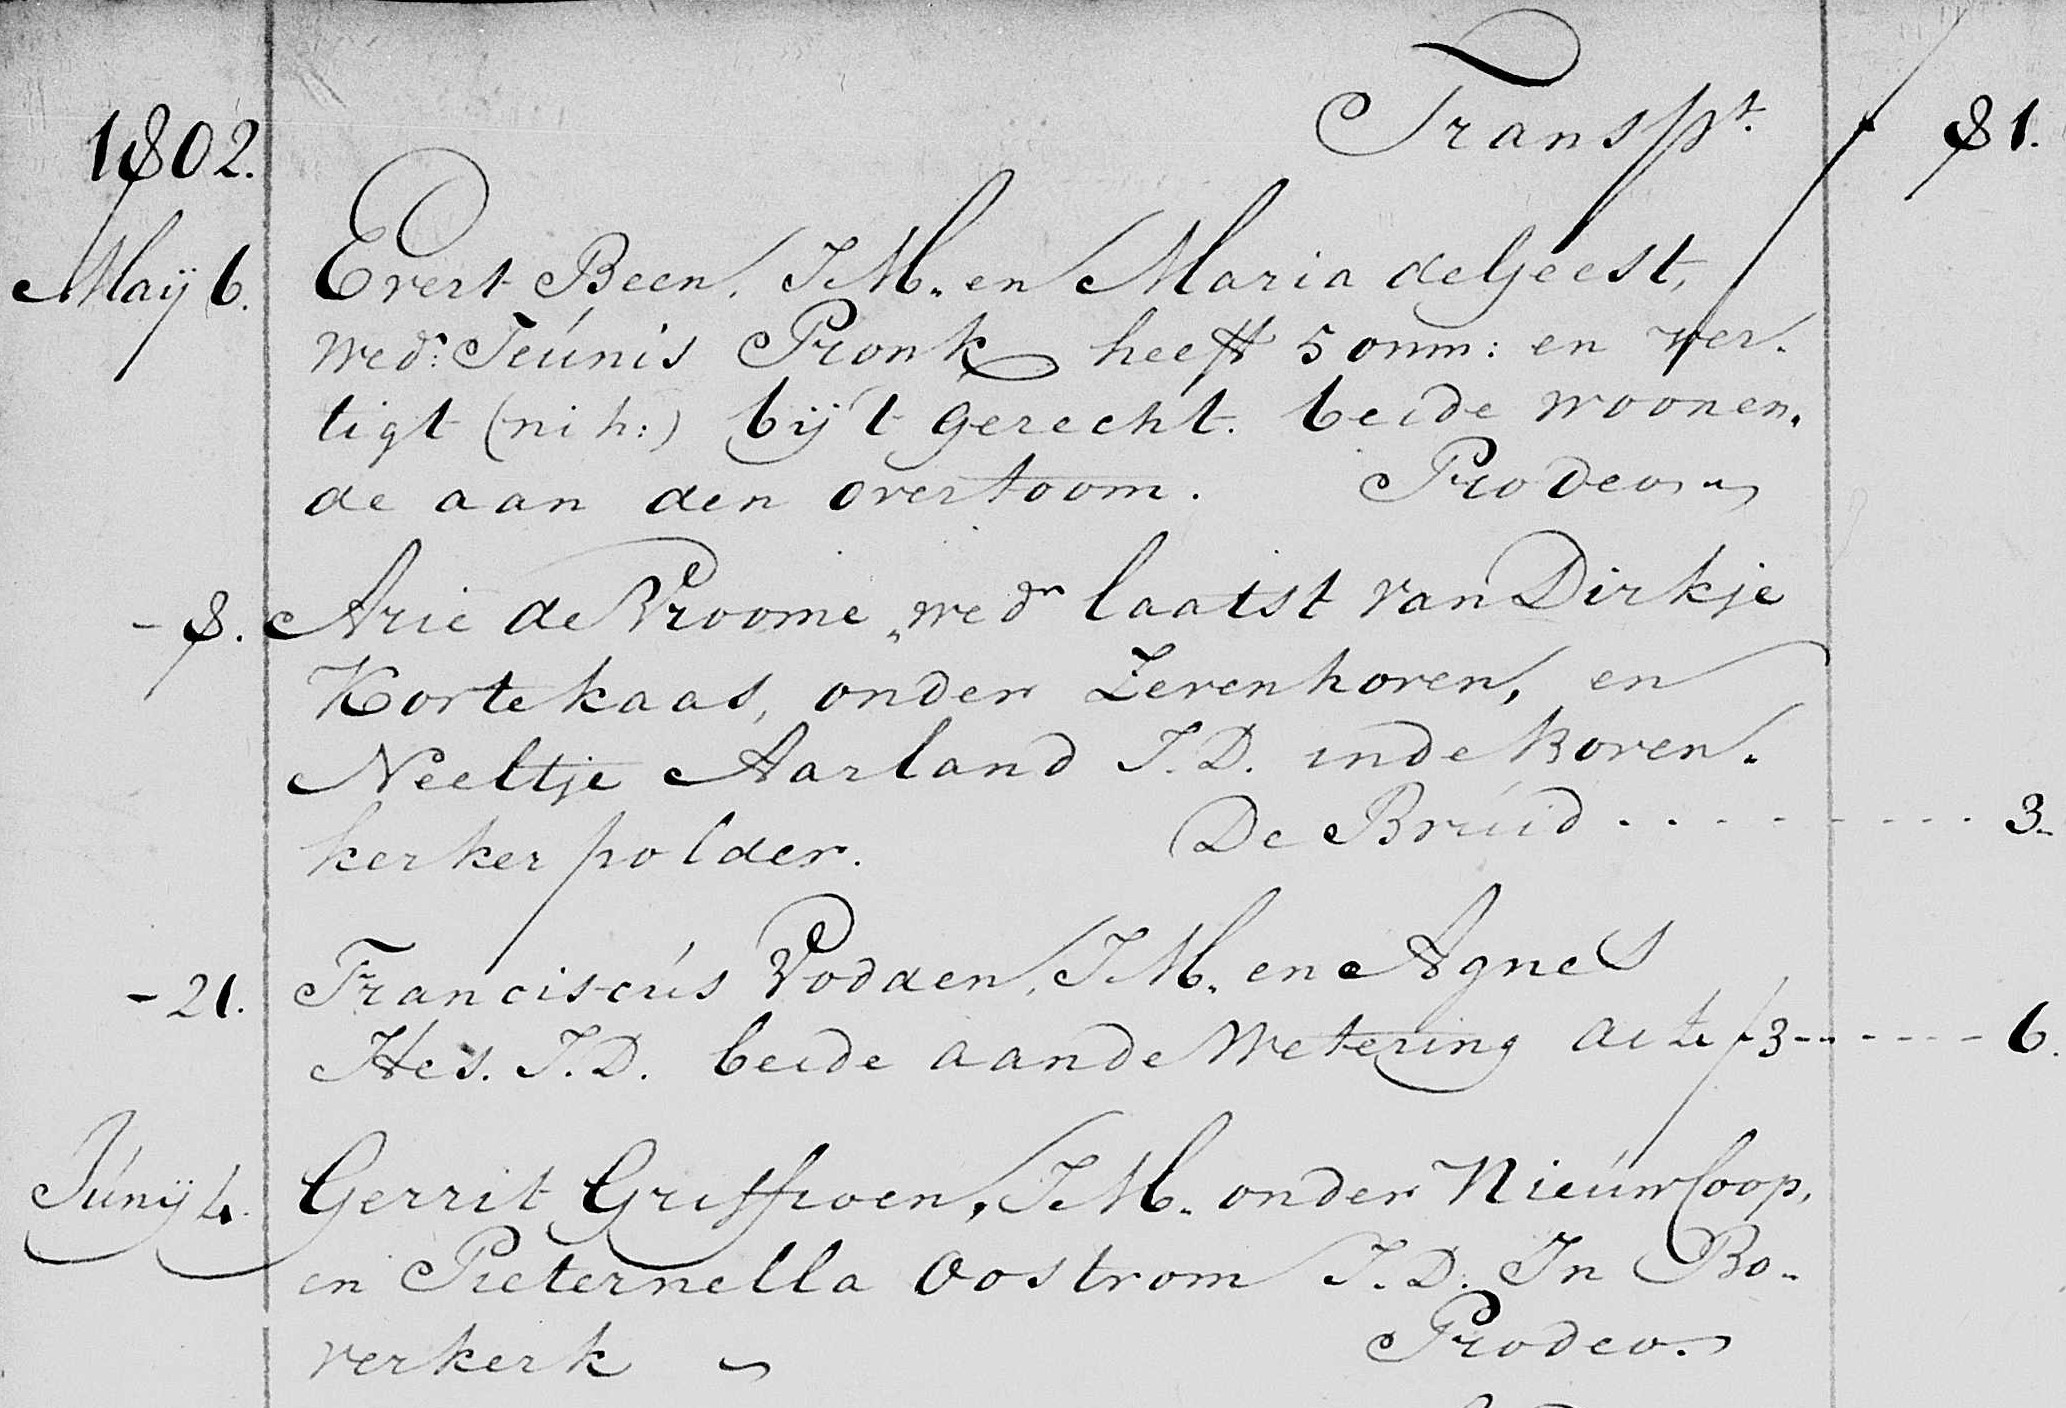 1802. Transpt. 81.
Maij 6. Evert Been, J M. en Maria de Geest,
wedr: Teúnis Pronk heeft 5 onm: en ver-
tigt (nih:) bij 't gerecht. beide woonen-
de aan den overtoom. Prodeo
- 8. Arie de Vroome, wedn laatst van Dirkje
Kortekaas, onder Zevenhoven, en
Neeltje Aarland J. D. in de Boven-
kerker polder. De Brúid - - - - - - - - - 3.
- 21. Franciscús Vodden, J M. en Agnes
Hes. J. D. beide aan de Wetering ad f 3 - - - - - - 6.
Júnij 4. Gerrit Griffioen, J M. onder Nieúwkoop,
en Pieternella Oostrom J. D. In Bo-
verkerk Prodeo.